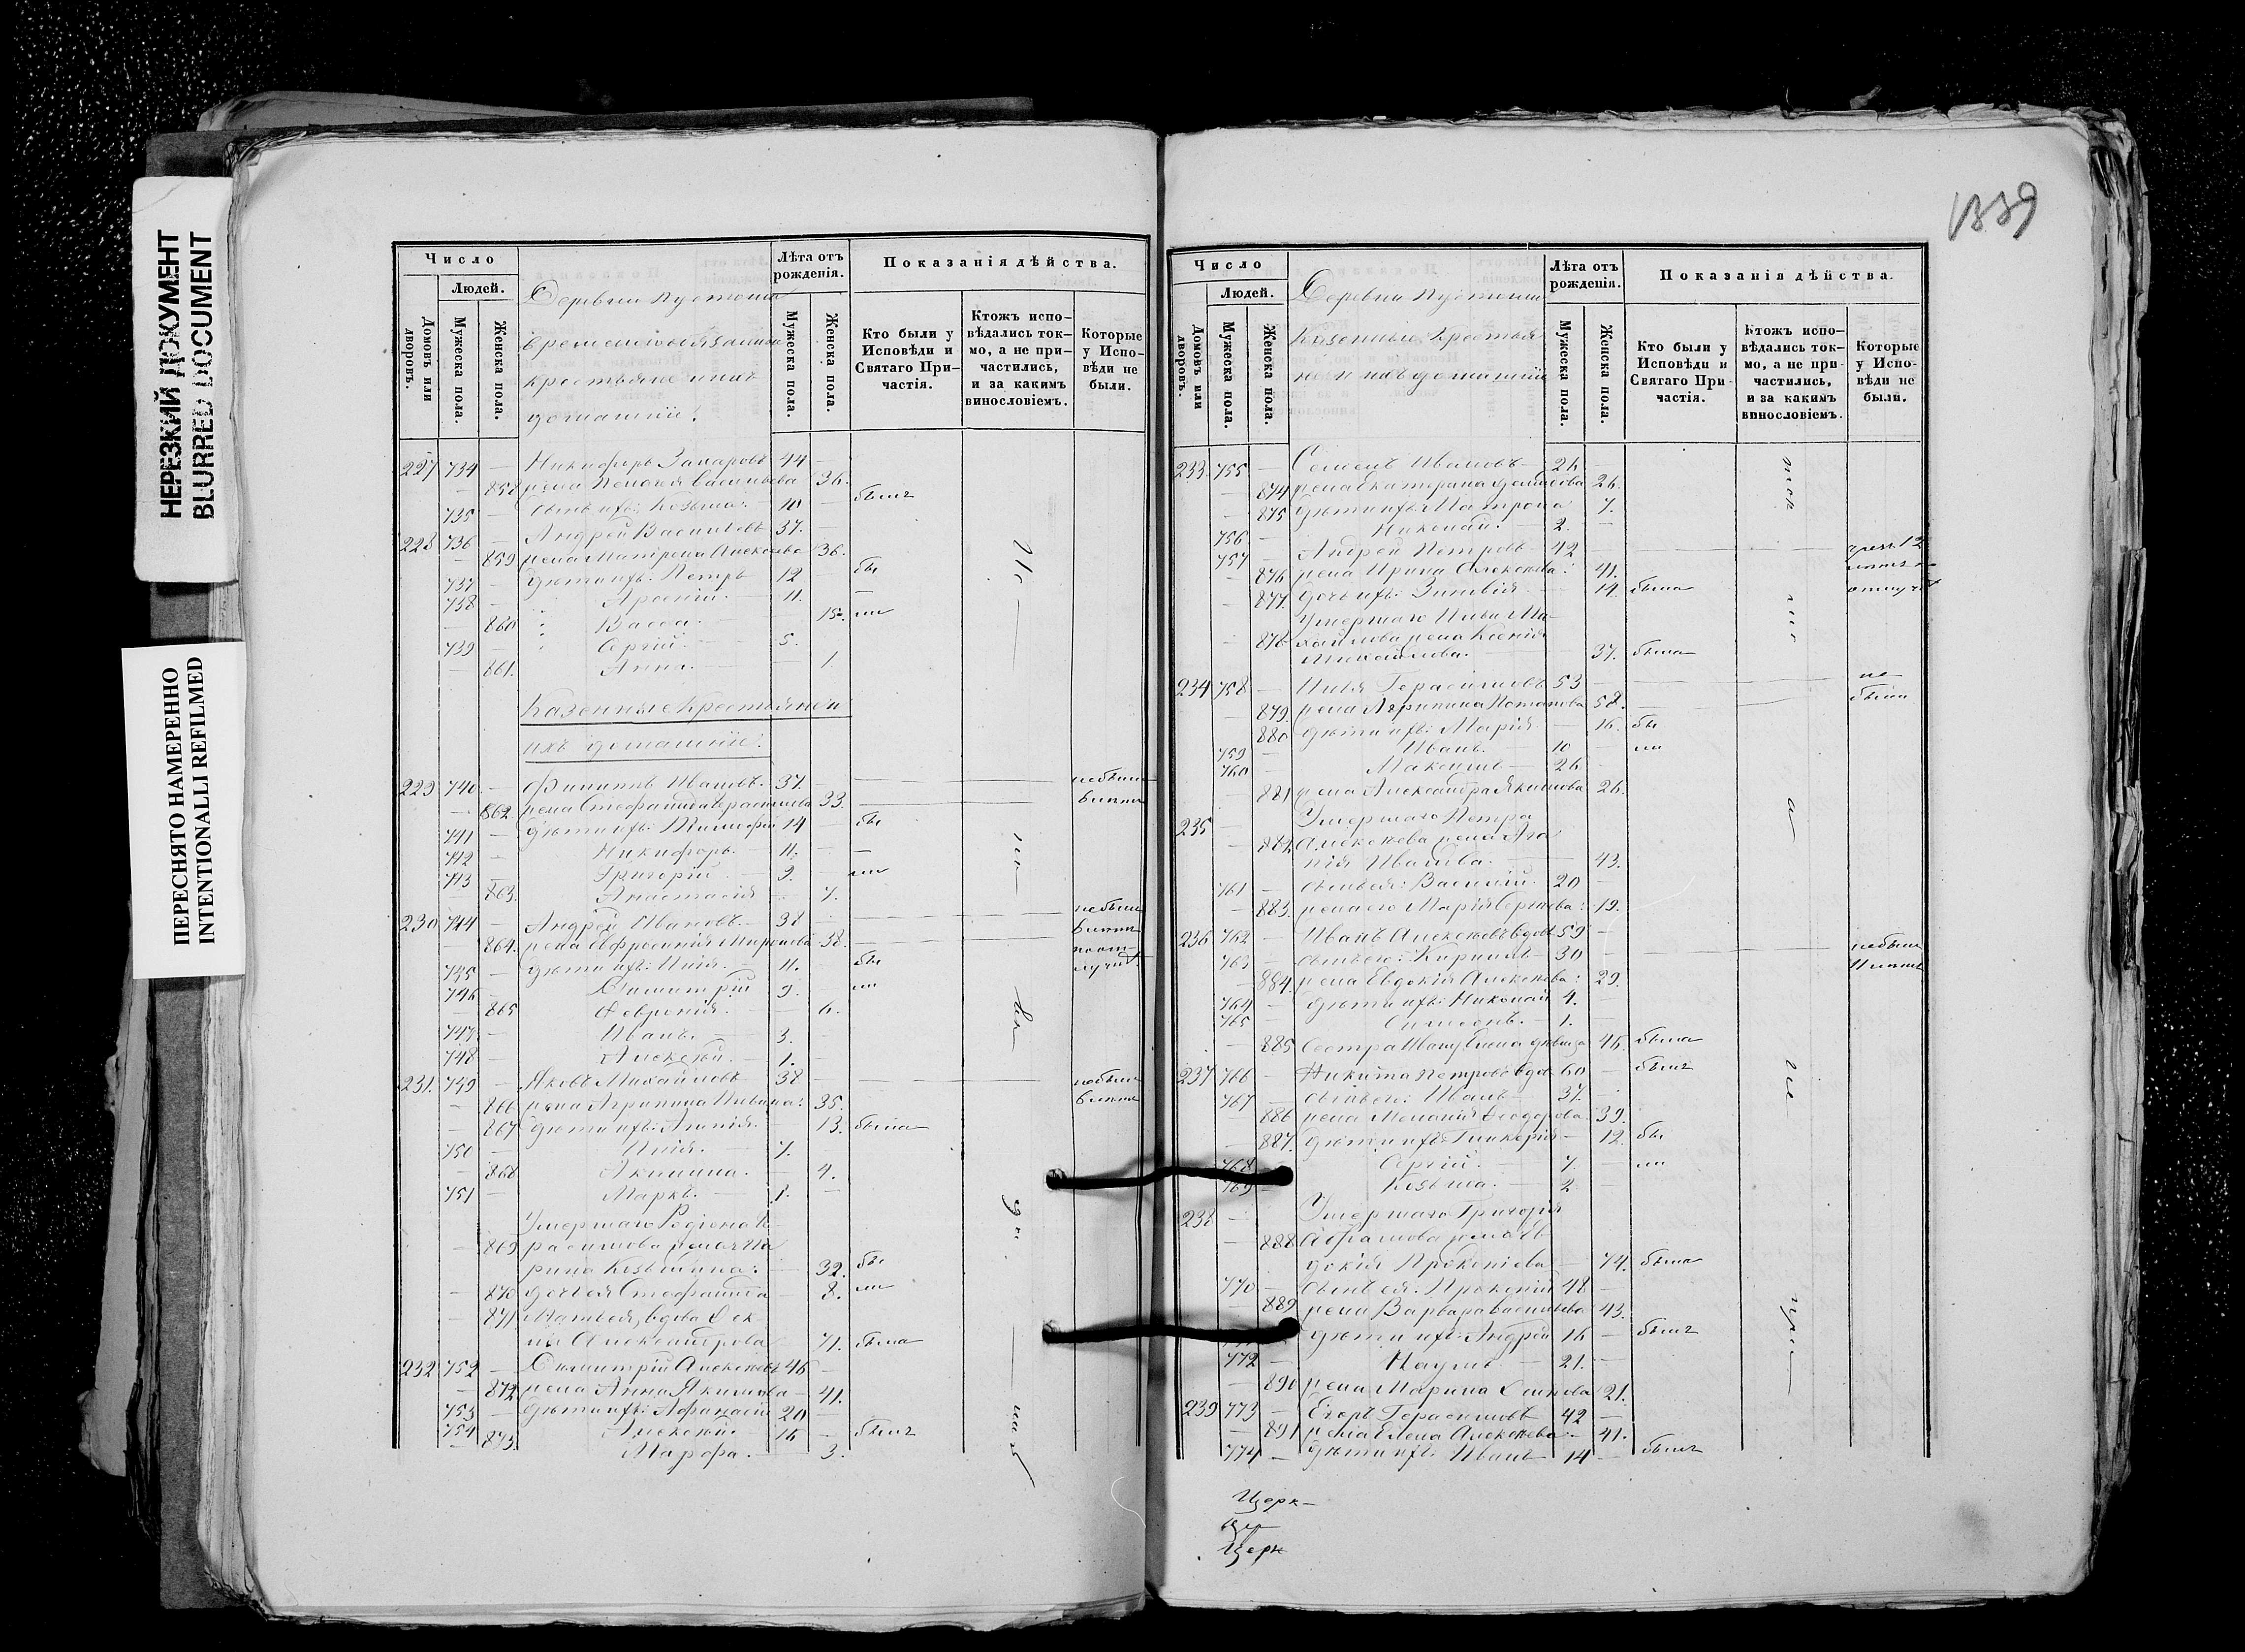 НЕРЕЗКИЙ ДОКУМЕНТ
BLURRED DOCUMENT
ПЕРЕСНЯТО НАМЕРЕННО
INTENTIONALLI REFILMED
Число
Людей.
Домовъ или дворовъ.
Мужеска пола.
Женска пола.
Деревни Пустоши
крестьяне и ихъ
домашніе.
Лѣта отъ рожденія.
Мужеска пола.
Женска пола.
Показанія дѣйства.
Кто были у Исповѣди и Святаго При-частія.
Ктожъ испо-вѣдались ток-мо, а не при-частились, и за какимъ винословіемъ.
Которые у Испо-вѣди не были.
227 734 — Никифоръ Захаровъ 44 —
— 858 жена Васильева 36.
735 — сынъ ихъ: Козьма 10 — былъ
228 736 — Андрей Васильевъ 37. —
— 859 жена Матрена Алексѣева 36.
737 — дѣти ихъ: Петръ 12 — бы
738 — Арсеній 11. —
— 860 Васса 15. ли
739 — Сергій 5.
— 861. Анна 1.
Казенные Крестьяне и
ихъ домашніе.
229 740 — Филиппъ Ивановъ. 37.
— 862. жена Стефанида Герасимова 33.
741 — дѣти ихъ: 14 — бы
742 — Никифоръ. 11. —
743 — Григорій 9. ли
— 863. Анастасія 7.
230 744 — Андрей Ивановъ 38
— 864. жена Евфросинія Миронова 38.
745 — дѣти ихъ: Илія. 11. бы
746 — Димитрій 9. ли
— 865 Февронія. 6.
747 — Иванъ. 3.
748 — Алексѣй. 1.
231. 749 — Яковъ Михайловъ 38
— 866 жена Агрипина Ильина: 35.
— 867 дѣти ихъ: 13. была
750 — Илія. 7.
— 868 Акилина. 4.
751 — Маркъ. 1.
Умершаго Родіона Ге-
— 869 расимова жена Ма
рина Козьмина: 32. бы
— 870 дочь ея Стефанида 8. ли
— 871 Мать ея, вдова
Александрова 71. была
232 752 — Димитрій Алексѣевъ 46 —
— 872 жена Анна Якимова 41.
753 — дѣти ихъ: Афанасій 20 —
754 — Алексѣй. 16 — былъ
— 873. Марѳа. 3.
1339
Число
Людей.
Домовъ или дворовъ.
Мужеска пола.
Женска пола.
Деревни Пустоши
Казенные Крестья
не и ихъ домашніе
Лѣта отъ рожденія.
Мужеска пола.
Женска пола.
Показанія дѣйства.
Кто были у Исповѣди и Святаго При-частія.
Ктожъ испо-вѣдались ток-мо, а не при-частились, и за какимъ винословіемъ.
Которые у Испо-вѣди не были.
233. 755 — Семенъ Ивановъ 26.
— 874 жена Екатерина 26.
— 875 дѣти ихъ: Матрона 7.
756 — Николай. 2. —
757 — Андрей Петровъ 42
— 876 жена Ирина Алексѣева: 41.
— 877. дочь ихъ: Зиновія 14. была
Умершаго Ильи Ми-
— 878 хайлова жена Ксенія
Михайлова. 37. была
234 758 — Илья Герасимовъ 53 не
— 879. жена Агрипина Потапова 58. были
— 880 дѣти ихъ: Марія 16. бы
759 — Иванъ. 10 ли
760 — Максимъ 26
— 881 жена Александра Якимова 26.
235 — Умершаго Петра
— 882 Алексѣева жена Ага
пія Иванова. 43.
761 — сынъ ея: Василій. 20
— 883. жена его Марія Сергѣева: 19.
236 762 — Иванъ Алексѣевъ вдов 59 —
763 — сынъ его: Кирилъ 30
— 884. жена Евдокія Алексѣева: 29.
764 — дѣти ихъ: Николай 4. —
765 Симеонъ. 1. —
— 885 Сестра Ивану Елена дѣвица 46. была
237 766 — Никита Петровъ вдов 60 — былъ
767 — сынъ его: Иванъ 37. —
— 886 жена Меланія Ѳеодорова. 39.
— 887. дѣти ихъ: Гликерія 12. бы
768 Сергій. 7. ли
769 Козьма. 2
238 — Умершаго Григорія
— 888 жена Ев
докія Прокопіева 74. была
770 — сынъ ея: Прокопій 48 —
— 889 жена Варвара Васильева 43.
дѣти ихъ: Андрей 16 — былъ
772 — Наумъ 21. —
— 890 жена Марина 21.
239 773 — Егоръ Герасимовъ 42 —
— 891 жена Елена Алексѣева 41.
774 — дѣти ихъ: Иванъ 14 — былъ
Церк-
Це
Церк